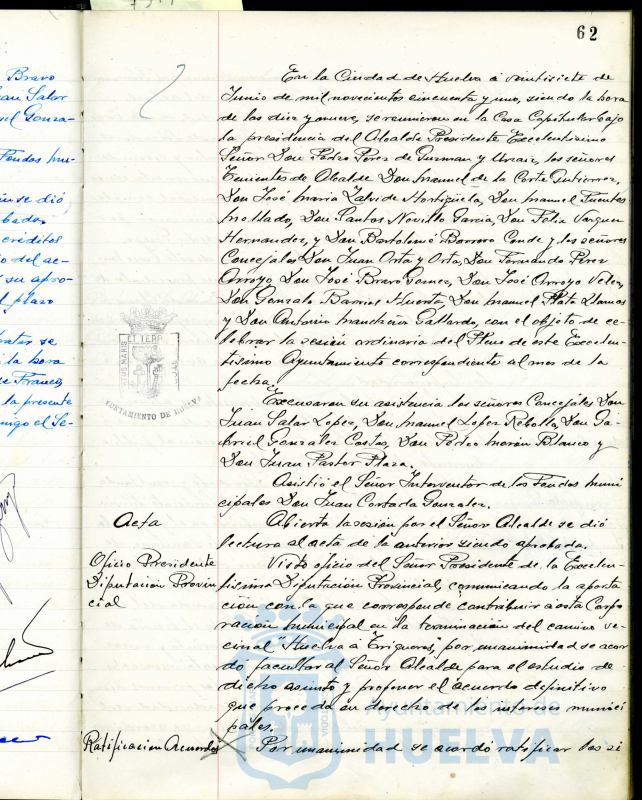 62
Bravo
Juan Salor
Fondos mu-
se dió
créditos
del ac-
su apro-
plazo
se
hora
Franco,
la presente
el Se-
En la Ciudad de Huelva a veintisiete de
Junio de mil novecientos cincuenta y uno, siendo la hora
de las diez y nueve, se reunieron en la Casa Capitular bajo
la presidencia del Alcalde Presidente Excelentísimo
Señor Don Pedro Pérez de Guzman y Urzaiz, los señores
Tenientes de Alcalde Don Manuel de la Corte Gutierrez,
Don José María Zalvide Hortigüela, Don Manuel Fuentes
Mollado, Don Santos Novillo García, Don Félix Vazquez
Hernandez, y Don Bartolomé Borrero Conde y los señores
Concejales Don Juan Orta y Orta, Don Fernando Pérez
Arroyo, Don José Bravo Gomez, Don José Arroyo Velez,
Don Gonzalo Barrios Huerta, Don Manuel Plata Llamas
y Don Antonio Mancheño Gallardo, con el objeto de ce-
lebrar la sesión ordinaria del Pleno de este Excelen-
tísimo Ayuntamiento correspondiente al mes de la
fecha.
Excusaron su asistencia los señores Concejales Don
Juan Salor Lopez, Don Manuel Lopez Rebollo, Don Ga-
briel Gonzalez Costas, Don Pedro Morón Blanco y
Don Juan Pastor Plaza.
Asistió el Señor Interventor de los Fondos muni
cipales Don Juan Cortada Gonzalez.
Acta
Abierta la sesión por el Señor Alcalde se dió
lectura al acta de la anterior siendo aprobada.
Oficio Presidente
Diputación Provin
cial
Visto oficio del Señor Presidente de la Excelen-
tísima Diputación Provincial, comunicando la aporta
ción con la que corresponde contribuir a esta Corpo
ración municipal en la terminación del camino ve-
cinal "Huelva a Trigueros", por unanimidad se acor
do facultar al Señor Alcalde para el estudio de
dicho asunto y proponer el acuerdo definitivo
que proceda en derecho de los intereses munici
pales.
Ratificación Acuerdos
Por unanimidad se acordó ratificar los si
AYUNTAMIENTO DE HUELVA
ayuntamiento de
HUELVA